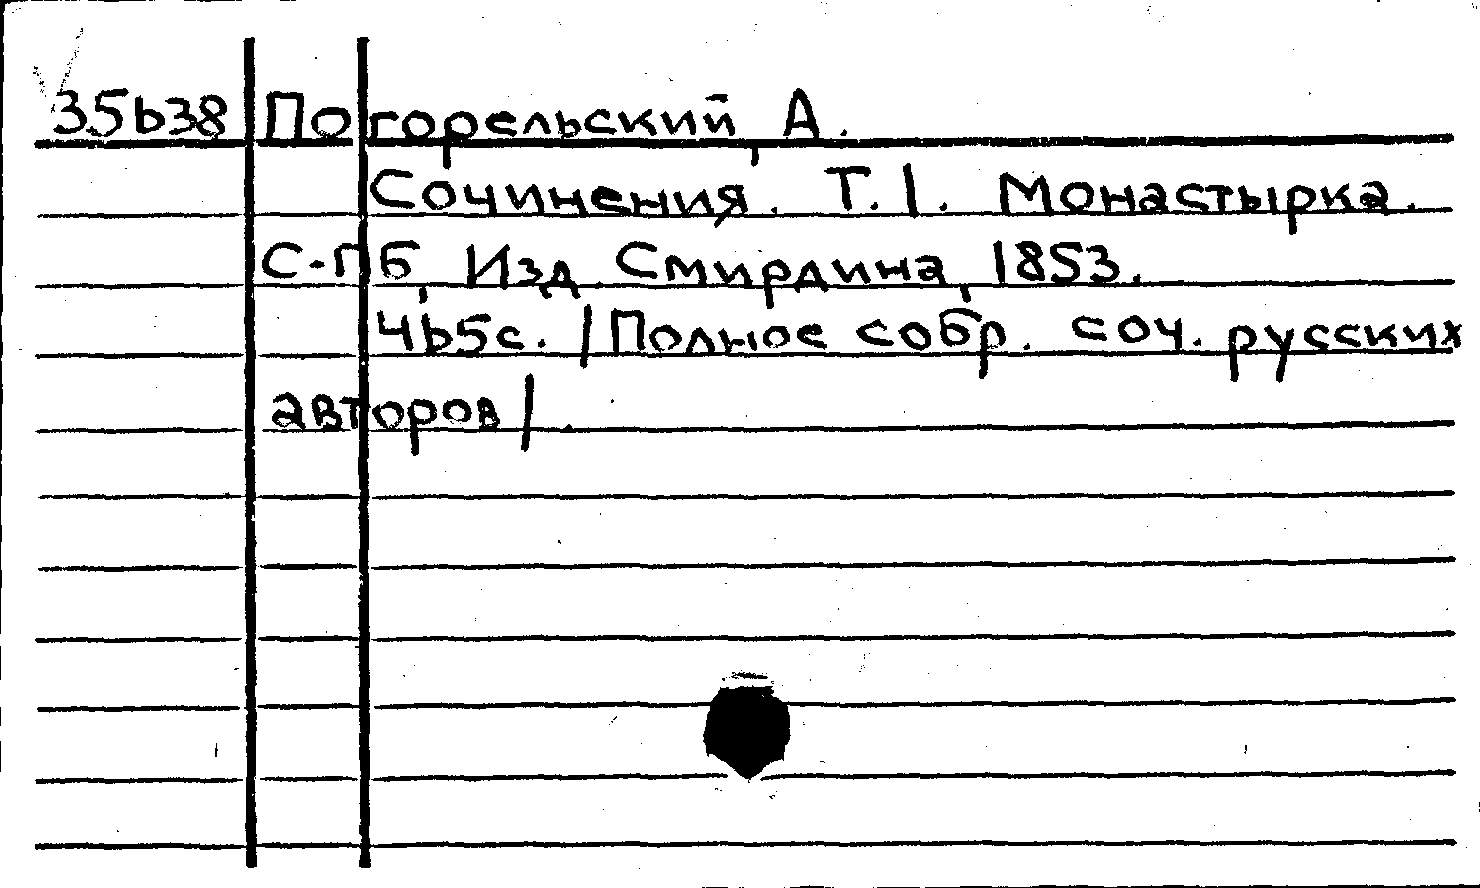 35638 Погорельский, А.
Сочинения. Т.1. Монастырка.
С-ПБ, Изд. Смирдина, 1853.
465с. /Полное собр. соч. русских
авторов/.